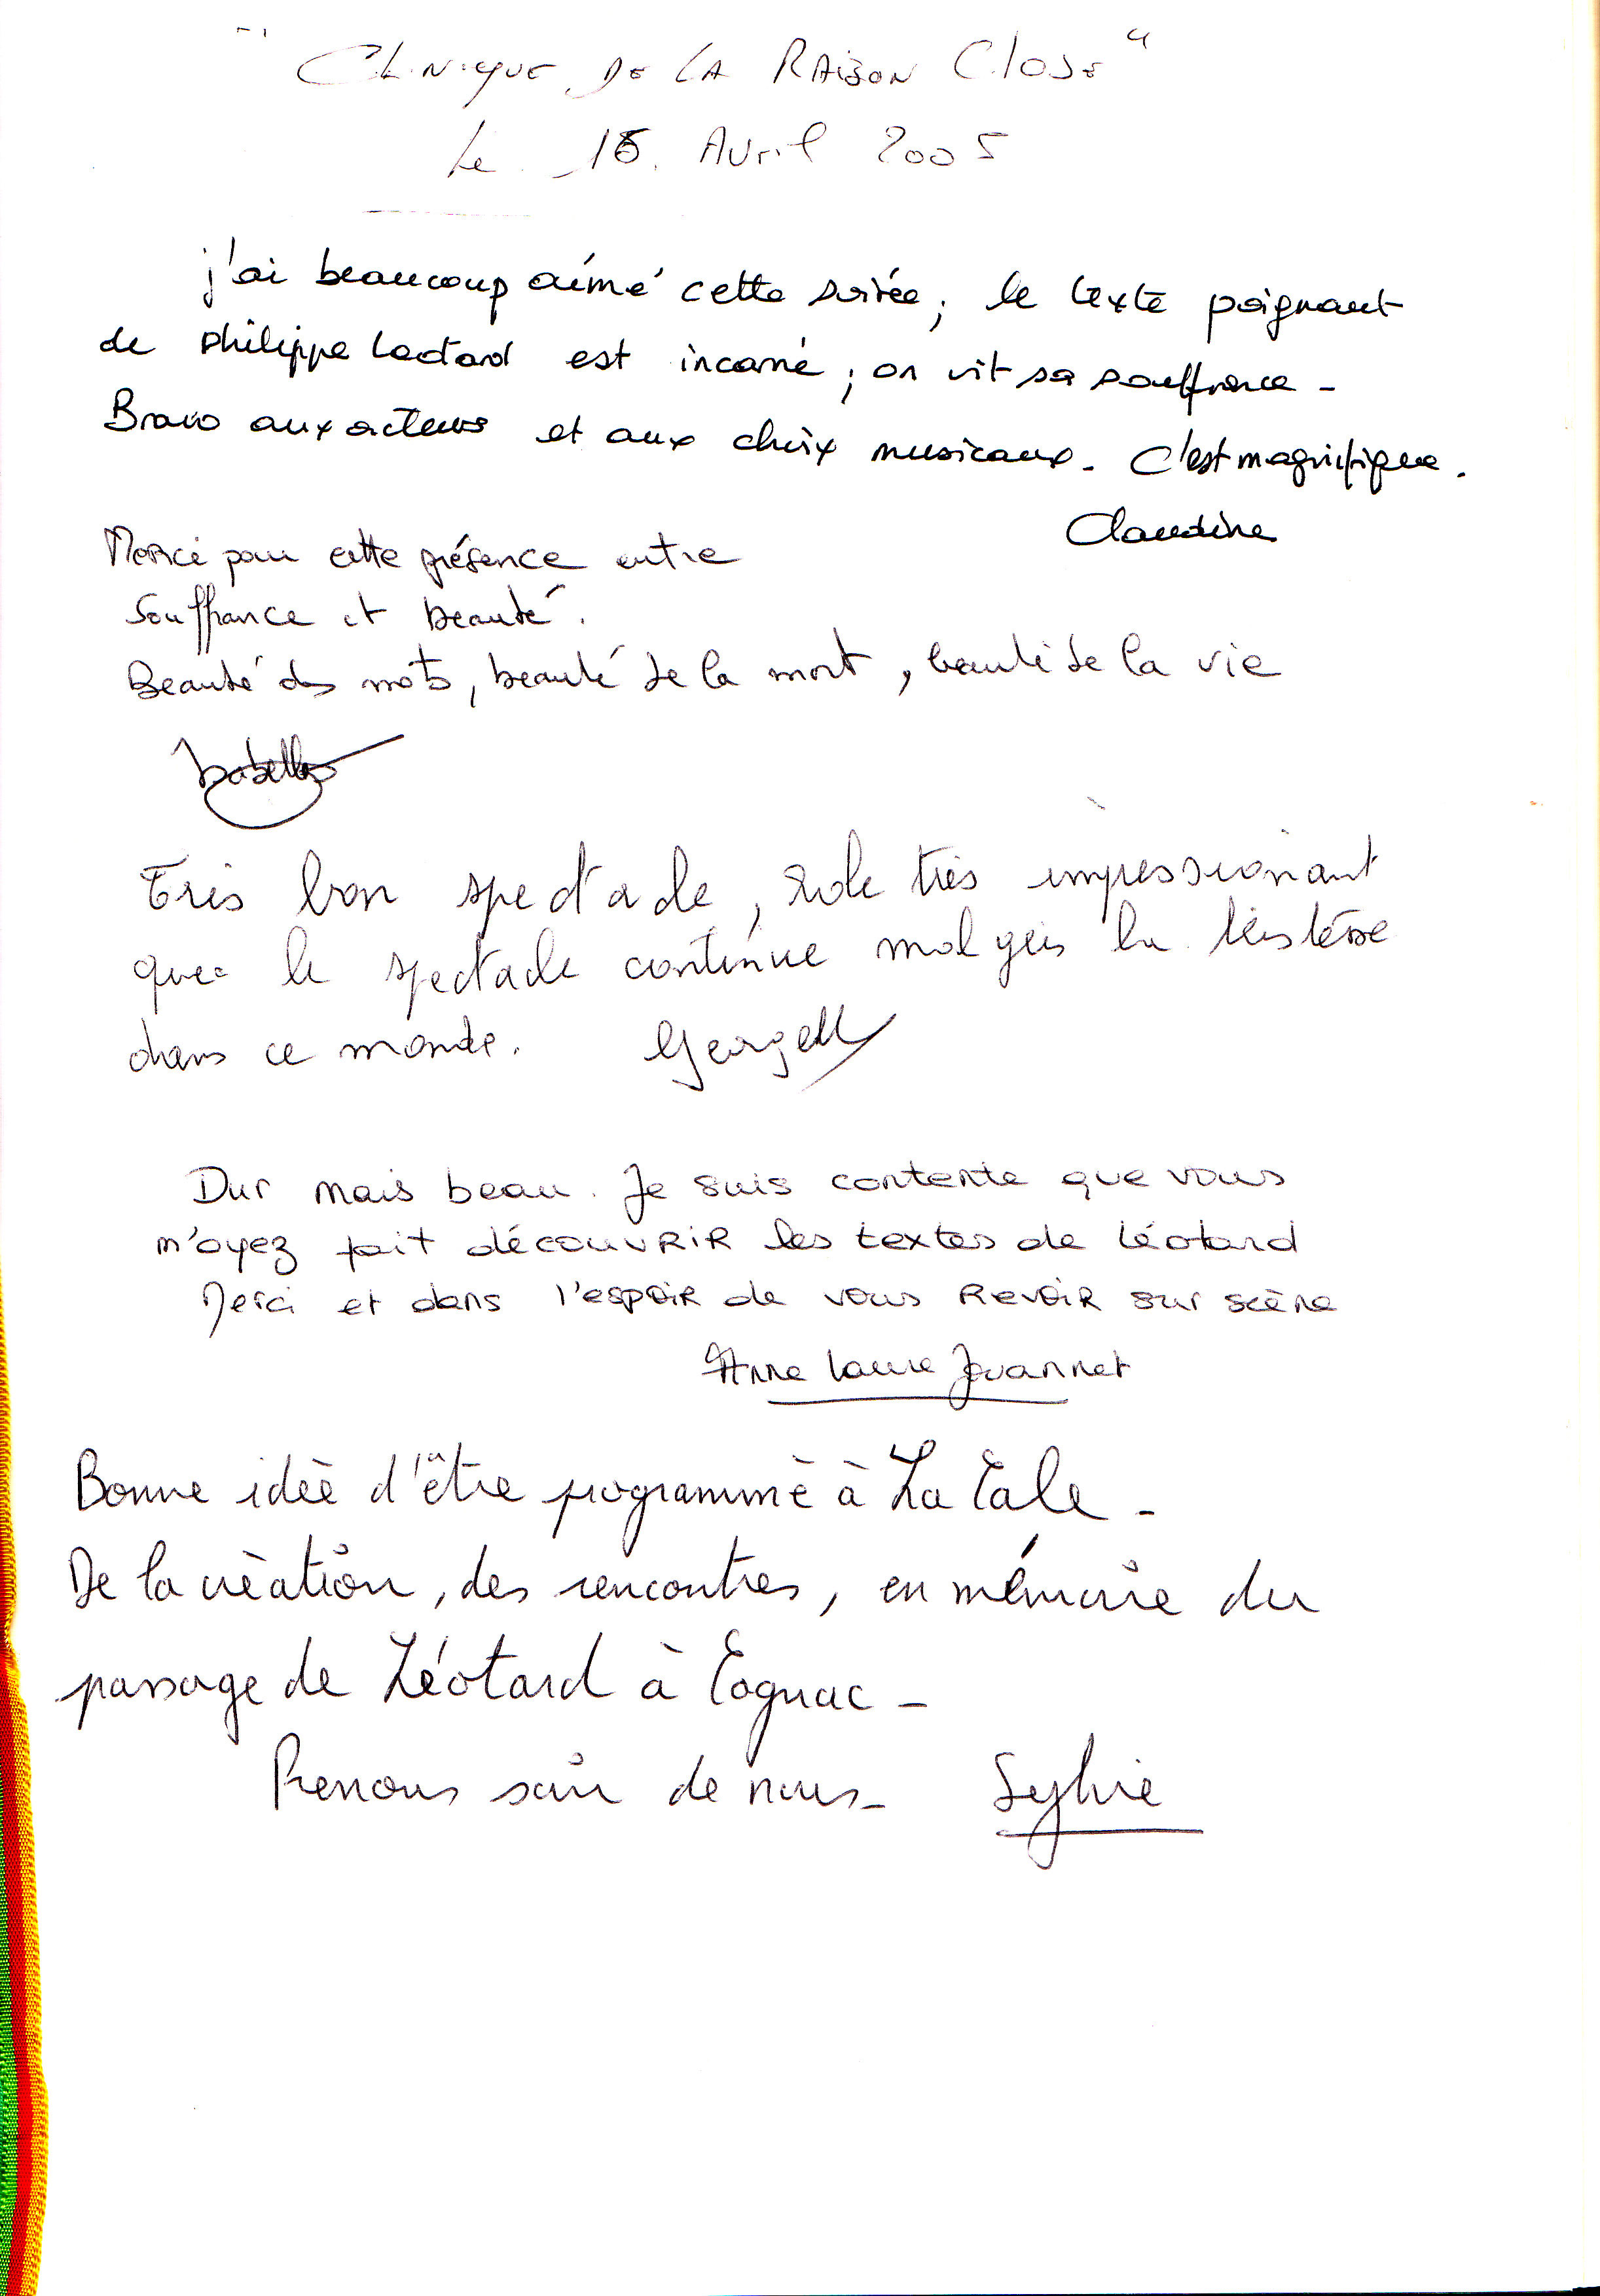 "CLiNiQUE DE LA RAiSON CloSE"
Le 15 Avril 2005
j'ai beaucoup aimé cette soirée, le texte poignant
de Philippe Léotard est incarné ; on vit sa souffrance -
Bravo aux acteurs et aux choix musicaux. C'est magnifique.
Claudine
Merci pour cette présence entre
souffrance et beauté.
Beauté des mots, beauté de la mort, beauté de la vie
Isabelle
Très bon spectacle, rôle très impressionant
que le spectacle continue malgres la
dans ce monde.
Dur mais beau. Je suis contente que vous
m'ayez fait découvrir les textes de Léotard
Merci et dans l'espoir de vous revoir sur scène
Anne Laure Jouannet
Bonne idée d'être programmé à La Cale -
De la création, des rencontres, en mémoire du
passage de Léotard à Cognac -
Prenons soin de nous - Sylvie